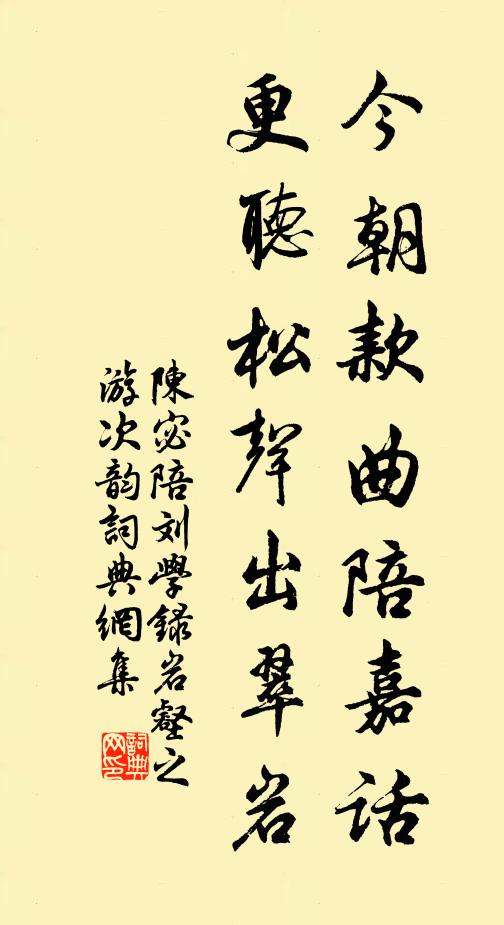 今朝款曲陪嘉話
更聽松聲出翠岩
陳宓陪刘學錄岩壑之
游次韵詞典網集
詞典网印